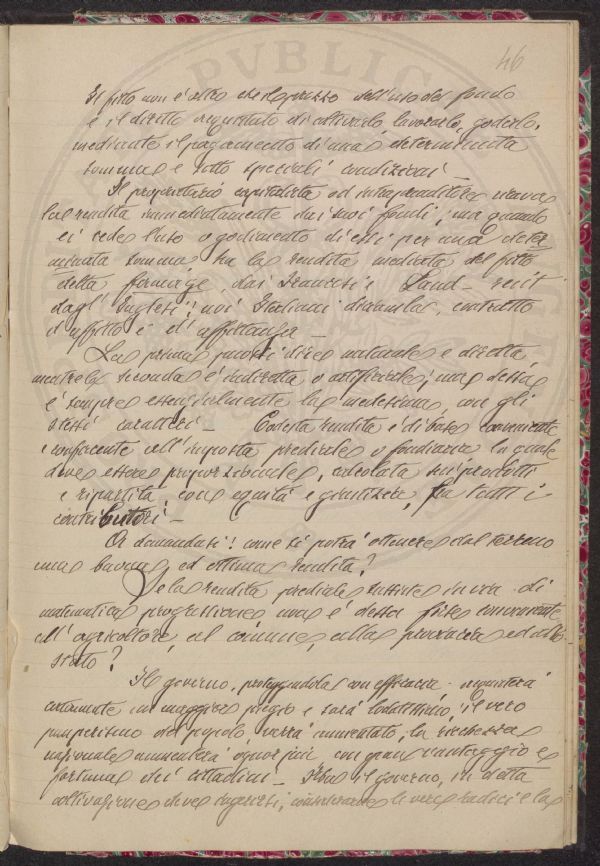 46
PVBLICA
Il fitto non è altro che il prezzo dell'uso del fondo
e il diritto acquistato di coltivarlo, lavorarlo, goderlo,
mediante il pagamento di una determinata
somma e sotto speciali condizioni —
Il proprietario capitalista od intraprenditore ricava
la rendita immediatamente dai suoi fondi; ma quando
ei cede l'uso o godimento di essi per una deter
minata somma ha la rendita mediata del fitto
detta fermage dai Francesi e Land-rent
dagl' Inglesi; noi Italiani diciamla, contratto
d'affitto e d'affittanza —
La prima puossi dire naturale e diretta,
mentre la seconda è indiretta o artificiale; ma dessa
è sempre essenzialmente la medesima con gli
stessi caratteri — Codesta rendita è di base conveniente
e confacente all'imposta prediale o fondiaria la quale
deve essere proporzionale, calcolata sui prodotti
e ripartita con equità e giustizia, fra tutti i
contributori —
Or domandasi! come si potrà ottenere dal terreno
una buona ed ottima rendita?
Se la rendita prediale sussiste in via di
matematica progressione non è dessa forse conveniente
all' agricoltore, al comune, alla provincia ed allo
stato?
Il governo, proteggendola con efficacia acquisterà
certamente un maggiore pregio e sarà lodatissimo; il vero
pauperismo del popolo, verrà annientato, la ricchezza
nazionale aumenterà ognor più con gran vantaggio e
fortuna dei cittadini — Ma il governo, in detta
coltivazione deve ingerirsi, considerarne le vere radici e la